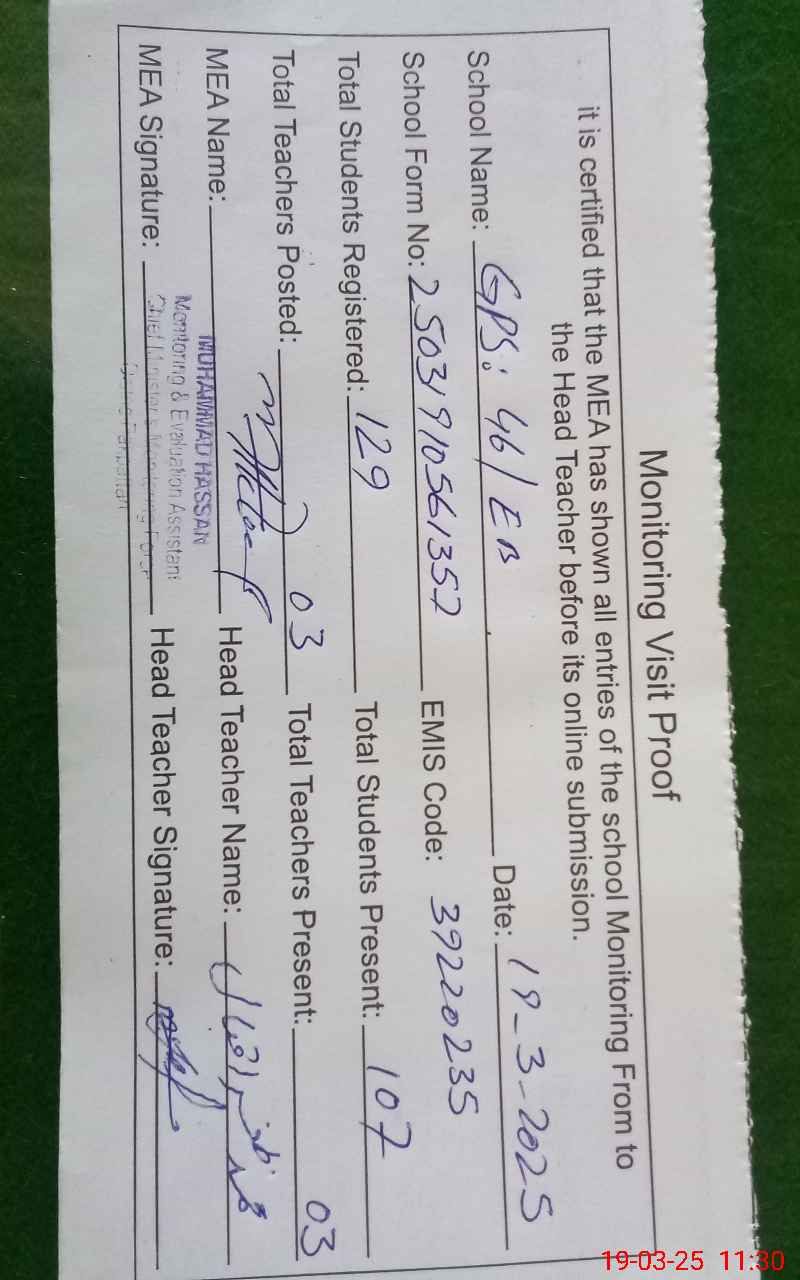 Monitoring Visit Proof
it is certified that the MEA has shown all entries of the school Monitoring From to
the Head Teacher before its online submission.
School Name: GPS: 46/EB Date: 19-3-2025
School Form No: 250319105613 57 EMIS Code: 39220235
Total Students Registered: 129 Total Students Present: 107
Total Teachers Posted: 03 Total Teachers Present: 03
MEA Name: MUHAMMAD HASSAN Head Teacher Name:
Monitoring & Evaluation Assistant
MEA Signature: Chief Minister's Monitoring Force Head Teacher Signature:
19-03-25 11:30